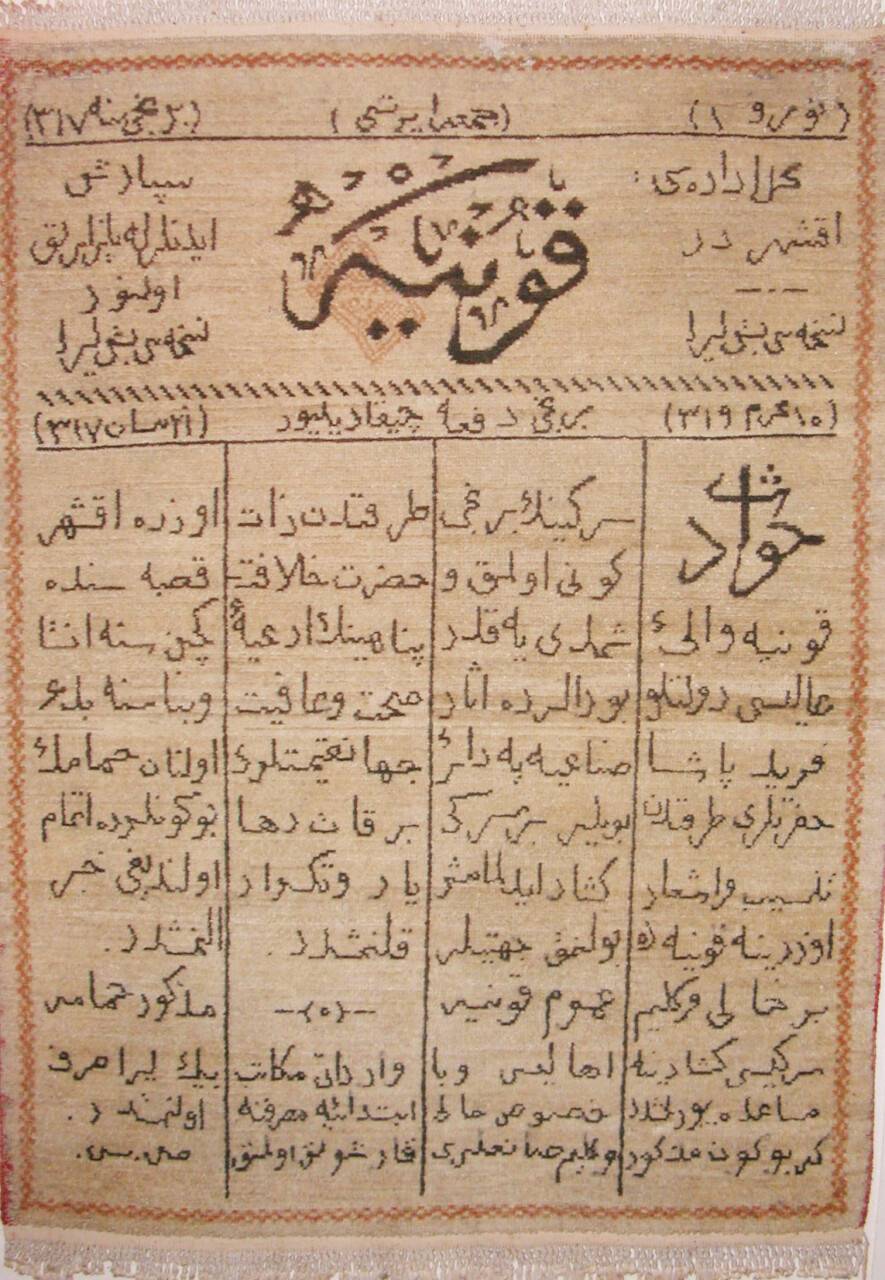 (نومرو ١)
(جمعه ایرتسی)
(برنجی سنه ٣١٧)
محل اداره‌سی:
اقشهر در
نسخه‌سی بش لیرا
قونیه
سپارش
ایدنلرله پازارلق
اولنور
نسخه‌سی بش لیرا
(١٠ محرم ٣١٩)
برنجی دفعه چیقاریلیور
(نیسان ٣١٧)
حوادث
قونیه والیٔ
عالیسی دولتلو
فرید پاشا
حضرتلری طرفندن
تنسیب و اشعار
اوزرینه قونیه ده
بر خالی و کلیم
سرگیسی کشادینه
مساعده بیورلمشدر
که بوکون مذکور
سرگینك برنجی
کونی اولمق و
شمدی یه قدر
بورالرده اثار
صناعیه یه دائر
بویله بر سرگی
کشاد ایدلمامش
بولنمق جهتیله
عموم قونیه
اهالیسی و با
خصوص خالی
و کلیم صانعلری
طرفندن ذات
حضرت خلافت
پناهینك ادعیهٔ
صحت و عافیت
جهانقیمتلری
بر قات دها
یاد و تکرار
قلنمشدر .
—(٥)—
واردات مکاتب
ابتدائیه مصرفنه
قارشولق اولمق
اوزره اقشهر
قصبه سنده
کچن سنه انشا
و بناسنه بدء
اولنان حمامك
بوکونلرده اتمام
اولندیغی خبر
النمشدر .
مذکور حمامه
بیك لیرا صرف
اولنمشدر .